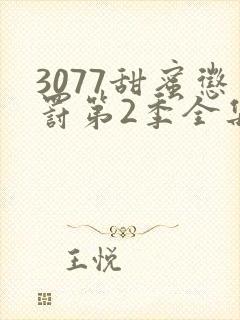 3077甜蜜惩
罚第2季全集
王悦